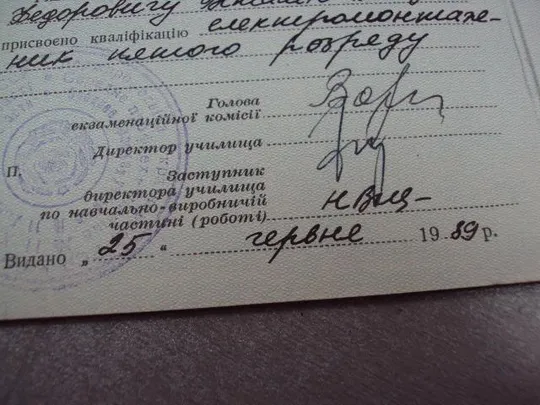 Федоровичу
присвоєно кваліфікацію електромонтаже-
ник пятого розряду
Голова
екзаменаційної комісії
Директор училища
П.
Заступник
директора училища
по навчально-виробничій
частині (роботі)
Видано „ 25 “ червне 19 89 р.